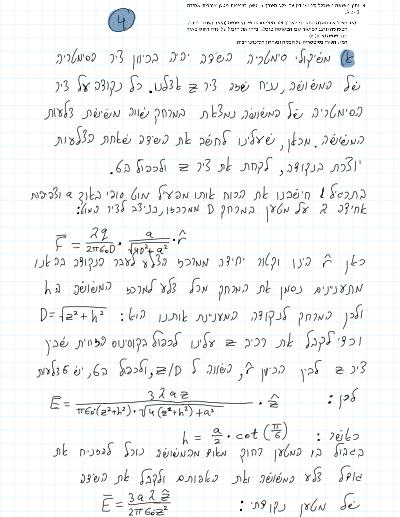 4
א) משיקולי סימטריה השדה יהיה בכיוון ציר הסימטריה
של המשושה, נניח שזה ציר z אצלנו. כל נקודה על ציר
הסימטריה של המשושה נמצאת במרחק שווה משישת צלעות
המשושה. מכאן, שעלינו לחשב את השדה שאחת הצלעות
יוצרת בנקודה, לקחת את ציר z ולכפול ב6.
בתרגיל 1 חישבנו את הכוח אותו מפעיל מוט סופי באורך a וצפיפות
אחידה λ על מטען במרחק D ממרכזו, בניצב לציר המוט:
F = λq/2πε₀D · a/√(4D²+a²) · r̂
כאן r̂ הינו וקטור יחידה ממרכז הצלע לעבר הנקודה בה אנו
מתעניינים נסמן את המרחק מכל צלע למרכז המשושה בh
ולכן המרחק לנקודה המעניינת אותנו הוא: D=√(z²+h²)
וכדי לקבל את רכיב z עלינו לכפול בקוסינוס הזווית שבין
ציר z לבין הכיוון r̂, השווה ל z/D, ולכפול ב6, יש 6 צלעות
לכן: E = 3λaz/πε₀(z²+h²)·√(4(z²+h²)+a²) · ẑ
כאשר: h = a/2 · cot(π/6)
בגבול בו המטען רחוק מאוד מהמשושה נוכל להזניח את
גודל צלע המשושה ואת האפותם ולקבל את השדה
של מטען נקודתי: E = 3aλẑ/2πε₀z²